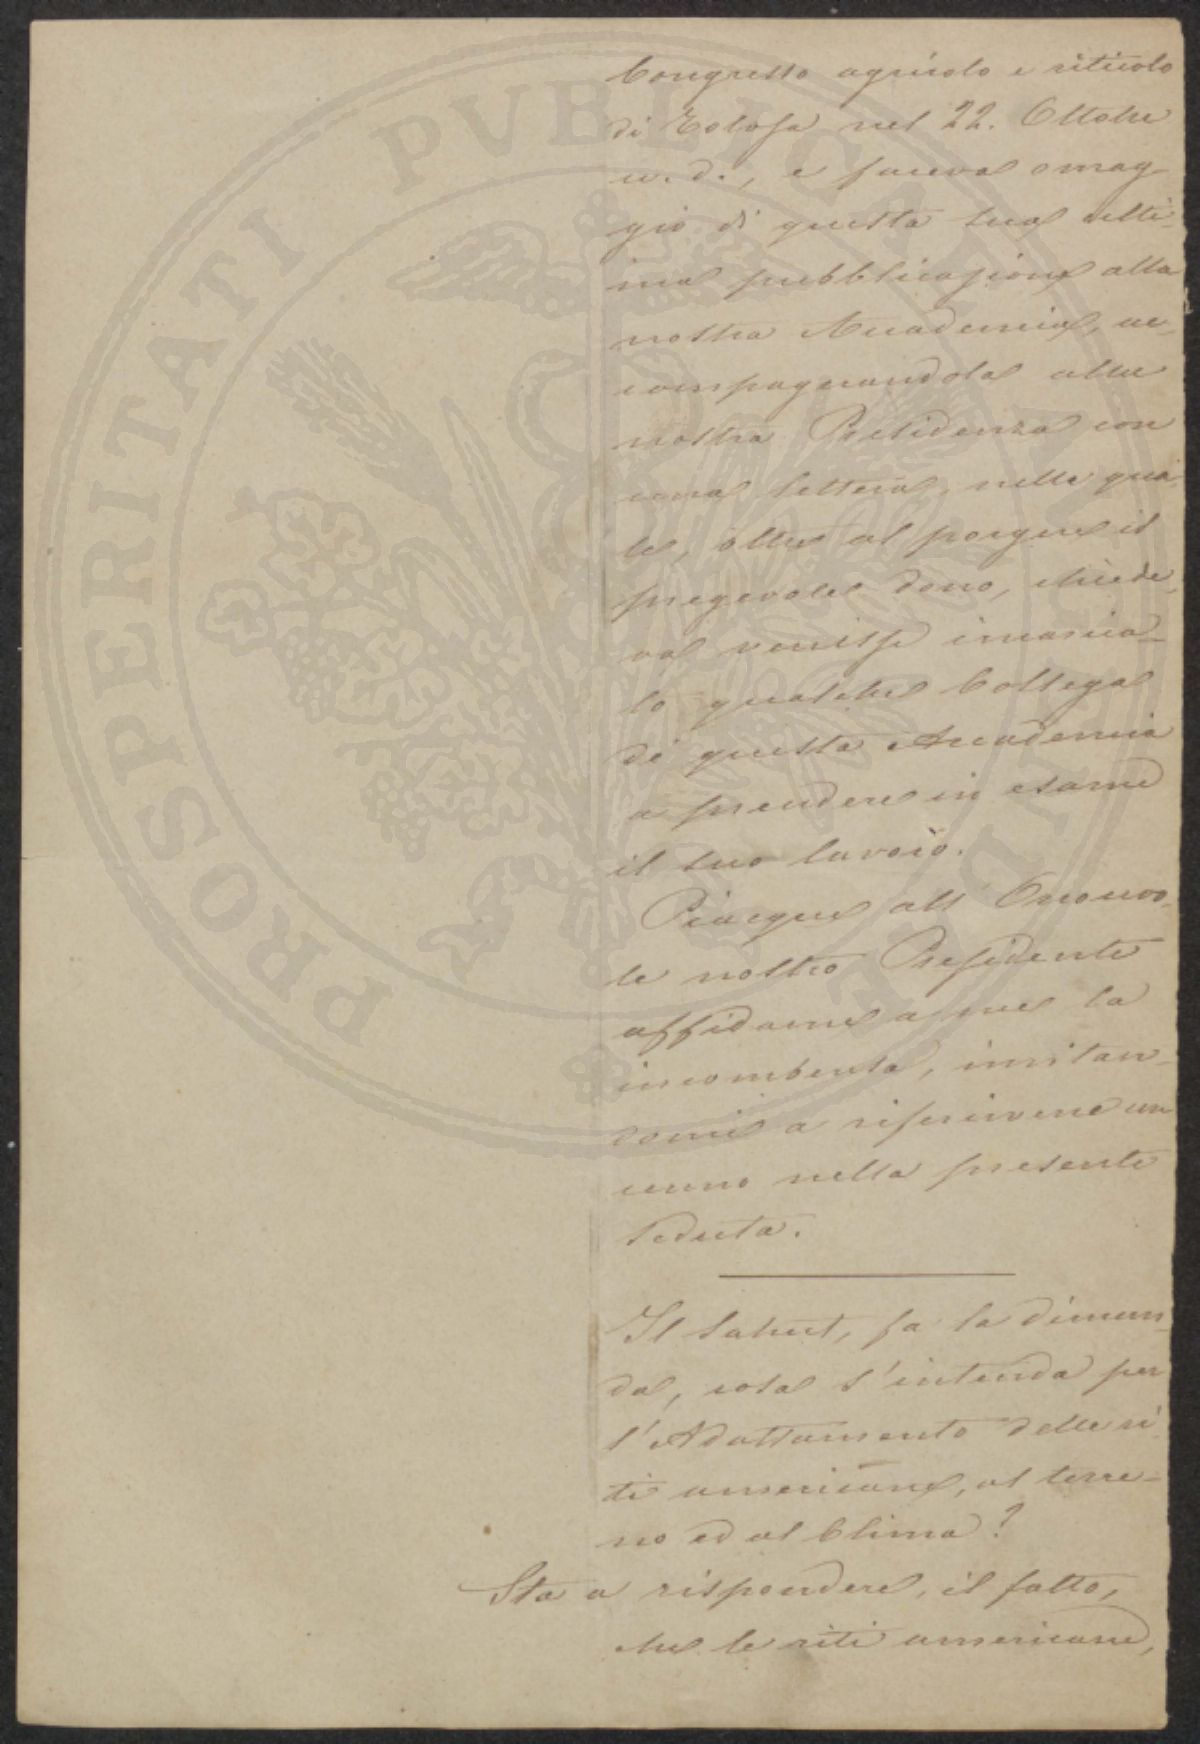 Congresso agricolo e viticolo
di Tolosa nel 22. Ottobre
u. d., e faceva omag-
gio di questa sua ulti-
ma pubblicazione alla
nostra Accademia, ac-
compagnandola alla
nostra Presidenza con
una lettera, nella qua-
le, oltre al porgere il
pregevole dono, chiede-
va venisse incarica-
to qualche Collega
di questa Accademia
a prendere in esame
il suo lavoro.
Piacque all' Onorevo-
le nostro Presidente
affidarne a me la
incombenza, invitan-
domi a riferirvene un
cenno nella presente
Seduta.
Il Sahut, fa la diman-
da, cosa s'intenda per
l'Adattamento delle vi-
ti americane, al terre-
no ed al Clima?
Sta a rispondere, il fatto,
che le viti americane,
PROSPERITATI PVBLICAE